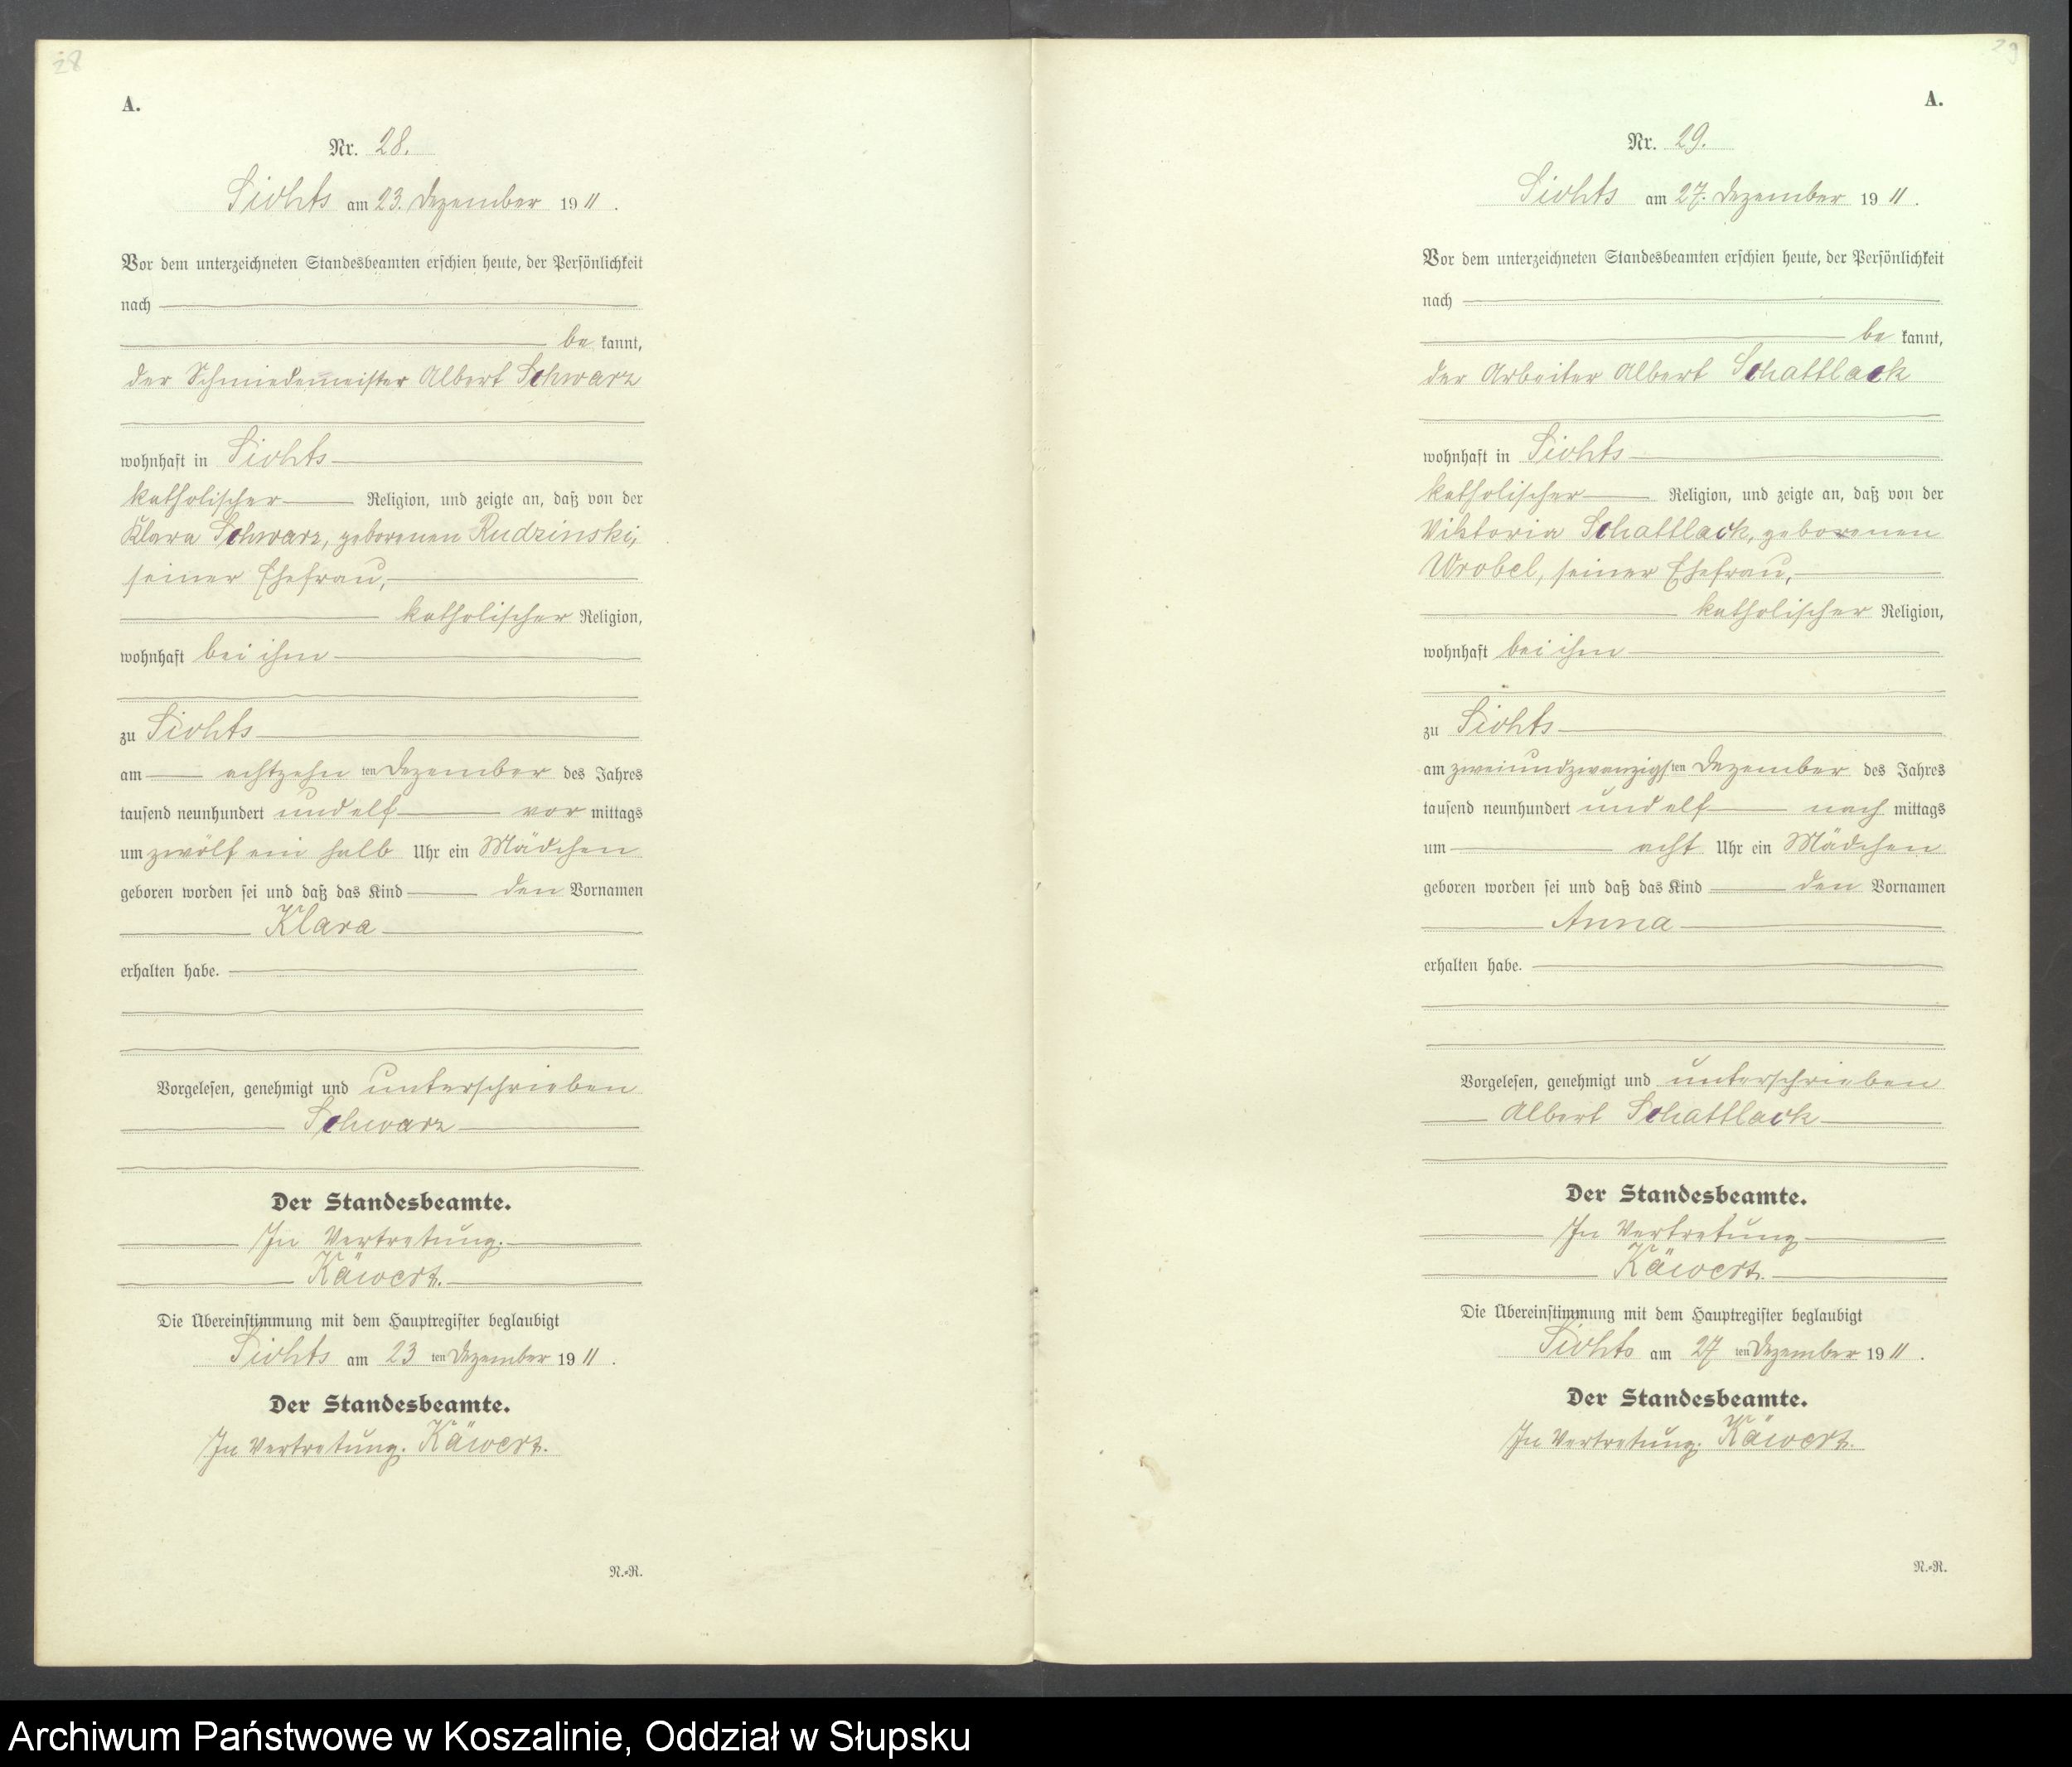 28
A.
Nr. 28.
Sichts am 23. Dezember 1911.
Vor dem unterzeichneten Standesbeamten erschien heute, der Persönlichkeit
nach
be kannt,
der Schmiedemeister Albert Schwarz
wohnhaft in Sichts
katholischer Religion, und zeigte an, daß von der
Klara Schwarz, geborenen Rudzinski,
seiner Ehefrau,
katholischer Religion,
wohnhaft bei ihm
zu Sichts
am achtzehn ten Dezember des Jahres
tausend neunhundert und elf vor mittags
um zwölf ein halb Uhr ein Mädchen
geboren worden sei und daß das Kind den Vornamen
Klara
erhalten habe.
Vorgelesen, genehmigt und unterschrieben
Schwarz
Der Standesbeamte.
In Vertretung.
Käwert.
Die Übereinstimmung mit dem Hauptregister beglaubigt
Sichts am 23 ten Dezember 1911.
Der Standesbeamte.
In Vertretung. Käwert.
N.-R.
29
A.
Nr. 29.
Sichts am 27. Dezember 1911.
Vor dem unterzeichneten Standesbeamten erschien heute, der Persönlichkeit
nach
be kannt,
der Arbeiter Albert Schattlack
wohnhaft in Sichts
katholischer Religion, und zeigte an, daß von der
Viktoria Schattlack, geborenen
Wrobel, seiner Ehefrau,
katholischer Religion,
wohnhaft bei ihm
zu Sichts
am zweiundzwanzigsten Dezember des Jahres
tausend neunhundert und elf nach mittags
um acht Uhr ein Mädchen
geboren worden sei und daß das Kind den Vornamen
Anna
erhalten habe.
Vorgelesen, genehmigt und unterschrieben
Albert Schattlack
Der Standesbeamte.
In Vertretung
Käwert.
Die Übereinstimmung mit dem Hauptregister beglaubigt
Sichts am 27 ten Dezember 1911.
Der Standesbeamte.
In Vertretung. Käwert.
N.-R.
Archiwum Państwowe w Koszalinie, Oddział w Słupsku